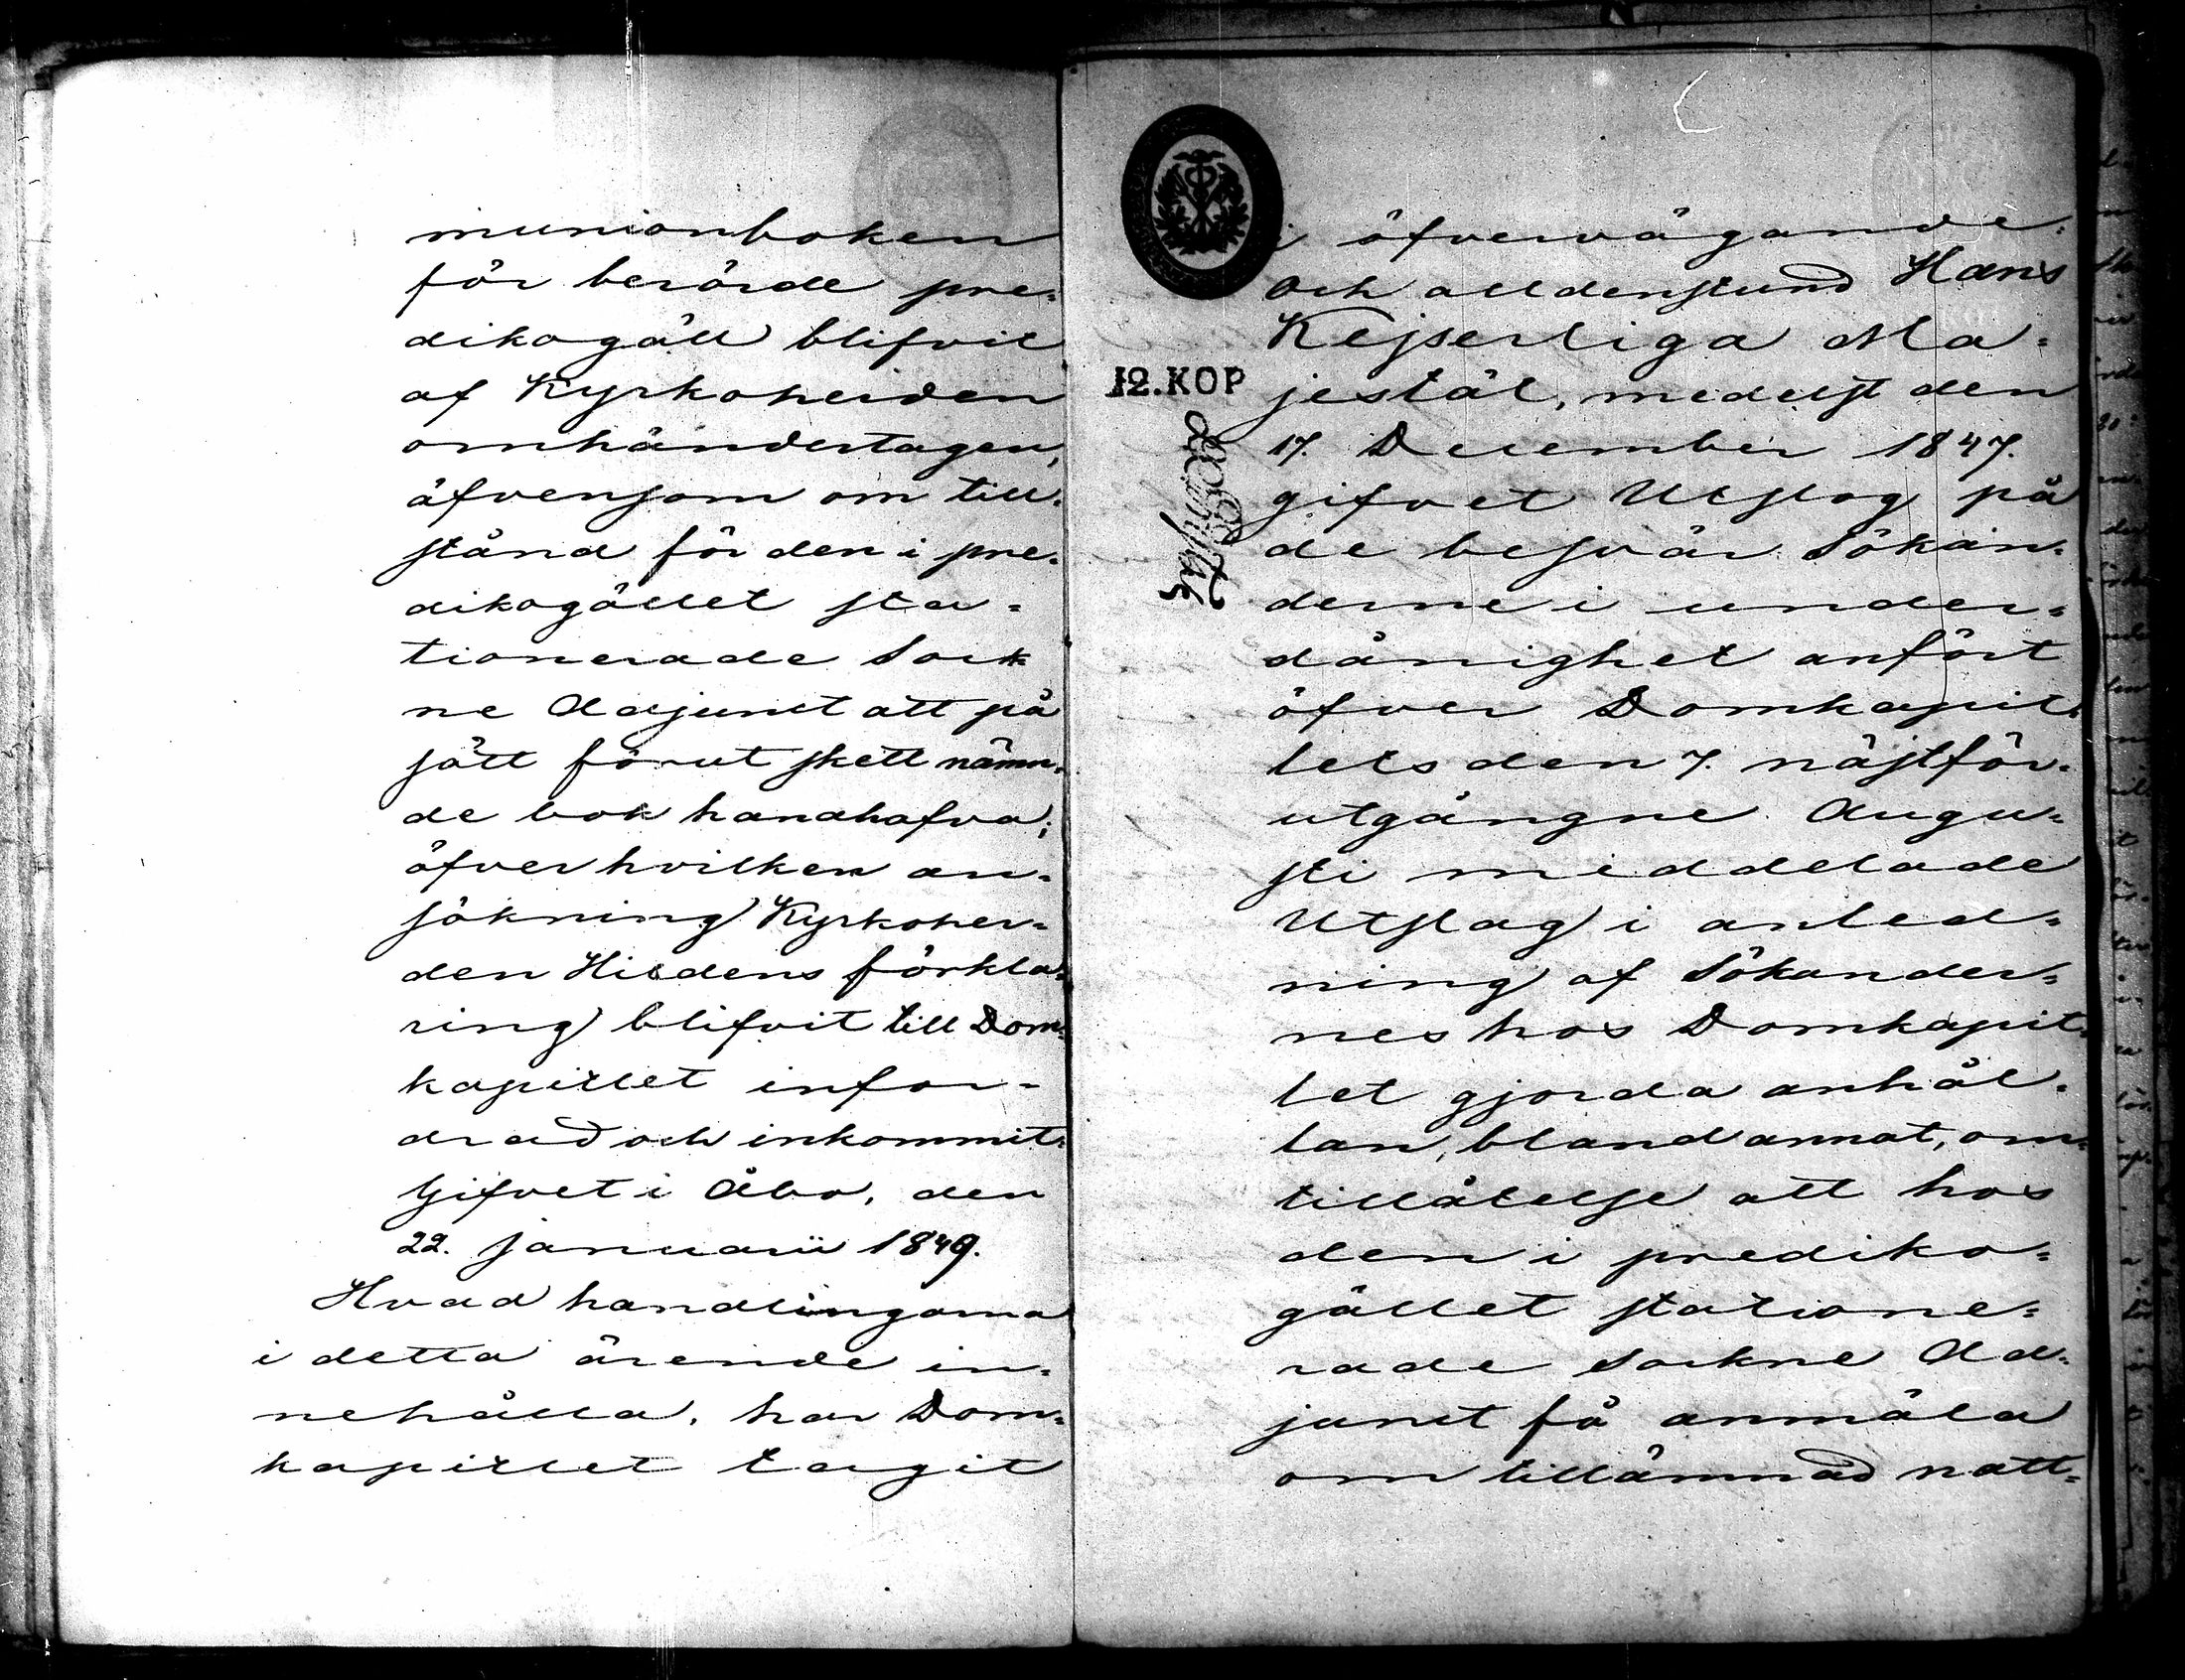 munionboken
för berörde pre=
dikogäll blifvit
af Kyrkoherden
omhändertagen,
äfvensom om till=
stånd för den i pre=
dikogället sta=
tionerade Sock
ne Adjunct att på
sätt förut skett nämn=
de bok handhafva;
öfver hvilken an=
sökning Kyrkoher=
den Hildens förkla=
ring blifvit till Dom=
kapitlet infor=
drad och inkommit.
Gifvet i Åbo, den
22. Januarii 1849.
Hvad handlingarna
i detta ärende in=
nehålla, har Dom=
kapitlet tagit
i öfvervägande:
Och alldenstund Hans
Kejserliga Ma=
12. KOP
jestät, medelst den
17. December 1847.
gifvet Utslag på
de besvär Sökan=
derne i under=
dånighet anfört
öfver Domkapit=
lets den 7. näst för=
utgångne Augu=
sti meddelade
Utslag i anled=
ning af Sökander=
nes hos Domkapit=
let gjorda anhål=
lan, bland annat, om
tillåtelse att hos
den i prediko=
gället statione=
rade Sockne Ad=
junct få anmäla
om tillämnad natt=